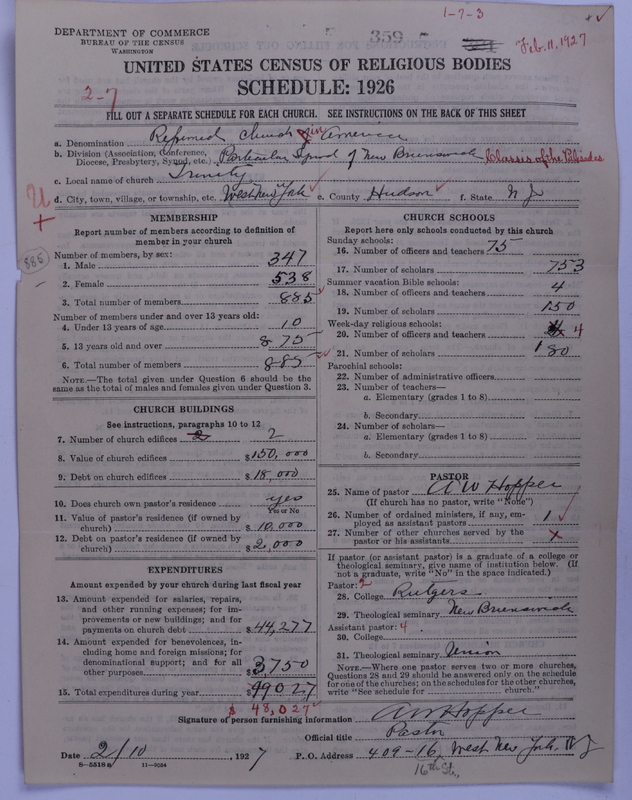 1-7-3
DEPARTMENT OF COMMERCE
BUREAU OF THE CENSUS
WASHINGTON
359
Feb. 11, 1927
UNITED STATES CENSUS OF RELIGIOUS BODIES
SCHEDULE: 1926
2-7
FILL OUT A SEPARATE SCHEDULE FOR EACH CHURCH. SEE INSTRUCTIONS ON THE BACK OF THIS SHEET
a. Denomination Reformed Church in America
b. Division (Association, Conference, Diocese, Presbytery, Synod, etc.) Particular Synod of New Brunswick Classis of the Palisades
c. Local name of church Trinity
d. City, town, village, or township, etc. West New York e. County Hudson f. State N J
MEMBERSHIP
Report number of members according to definition of
member in your church
Number of members, by sex:
1. Male 347
2. Female 538
885
3. Total number of members 885
Number of members under and over 13 years old:
4. Under 13 years of age 10
5. 13 years old and over 875
6. Total number of members 885
NOTE.—The total given under Question 6 should be the
same as the total of males and females given under Question 3.
CHURCH BUILDINGS
See instructions, paragraphs 10 to 12
7. Number of church edifices 2 2
8. Value of church edifices $150,000
9. Debt on church edifices $18,000
10. Does church own pastor's residence yes
Yes or No
11. Value of pastor's residence (if owned by
church) $10,000
12. Debt on pastor's residence (if owned by
church) $2,000
EXPENDITURES
Amount expended by your church during last fiscal year
13. Amount expended for salaries, repairs,
and other running expenses; for im-
provements or new buildings; and for
payments on church debt $44,277
14. Amount expended for benevolences, in-
cluding home and foreign missions; for
denominational support; and for all
other purposes $3,750
15. Total expenditures during year $49027
$48,027
CHURCH SCHOOLS
Report here only schools conducted by this church
Sunday schools:
16. Number of officers and teachers 75
17. Number of scholars 753
Summer vacation Bible schools:
18. Number of officers and teachers 4
19. Number of scholars 150
Week-day religious schools:
20. Number of officers and teachers 4
21. Number of scholars 180
Parochial schools:
22. Number of administrative officers
23. Number of teachers—
a. Elementary (grades 1 to 8)
b. Secondary
24. Number of scholars—
a. Elementary (grades 1 to 8)
b. Secondary
PASTOR
25. Name of pastor A W Hopper
(If church has no pastor, write "None")
26. Number of ordained ministers, if any, em-
ployed as assistant pastors 1
27. Number of other churches served by the
pastor or his assistants x
If pastor (or assistant pastor) is a graduate of a college or
theological seminary, give name of institution below. (If
not a graduate, write "No" in the space indicated.)
Pastor: 2
28. College Rutgers
29. Theological seminary New Brunswick
Assistant pastor: 4
30. College
31. Theological seminary Union
NOTE.—Where one pastor serves two or more churches,
Questions 28 and 29 should be answered only on the schedule
for one of the churches; on the schedules for the other churches,
write "See schedule for church."
Signature of person furnishing information AW Hopper
Official title Pastor
Date 2/10, 1927 P. O. Address 409-16, West New York, N J
16th St.,
8-5518a 11-9034